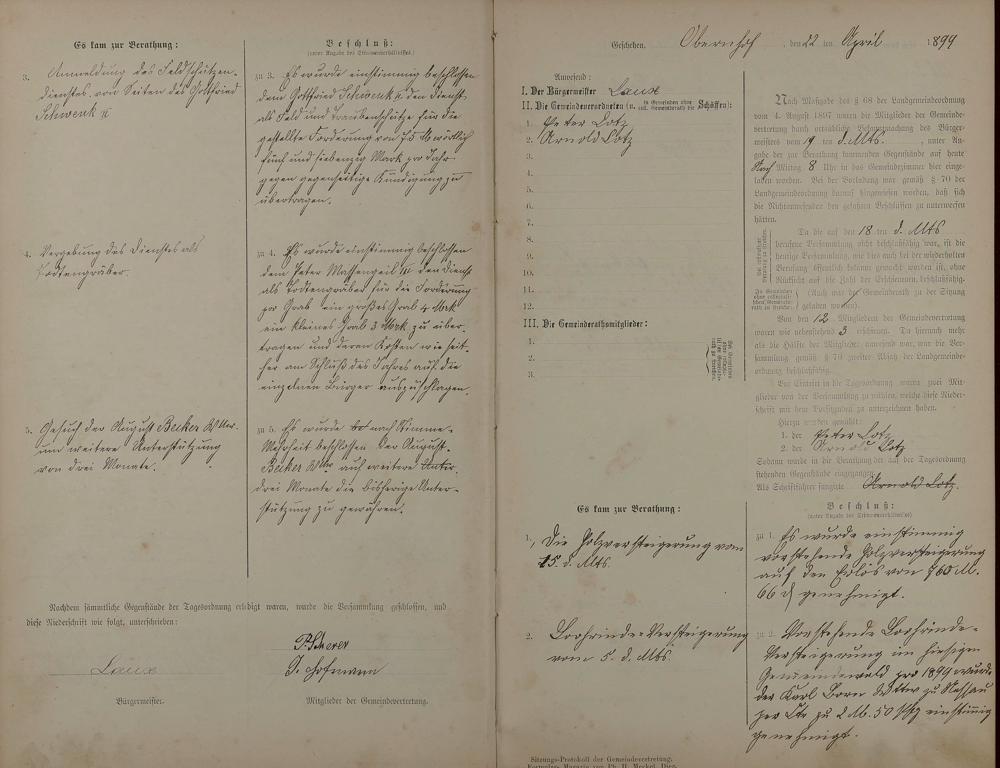 Es kam zur Berathung:
Beschluß:
(unter Angabe des Stimmenverhältnisses.)
3. Anmeldung des Feldschützen-
dienstes, von Seiten des Gottfried
Schwenk
zu 3. Es wurde einstimmig beschlossen
dem Gottfried Schwenk den Dienst
als Feld und Traubenschütze für die
gestellte Forderung von 75 M wörtlich
fünf und siebenzig Mark pro Jahr
gegen gegenseitige Kündigung zu
übertragen.
4. Vergebung des Dienstes als
Todtengräber.
zu 4. Es wurde einstimmig beschlossen
dem Peter Massengeil III den Dienst
als Todtengräber für die Forderung
pro Grab ein großes Grab 4 Mark
ein kleines Grab 3 Mark zu über-
tragen und deren Kosten wie seit-
her am Schluß des Jahres auf die
einzelnen Bürger auszuschlagen.
5. Gesuch der August Becker Wttwe.
um weitere Unterstützung
von drei Monate.
zu 5. Es wurde nach Stimme-
Mehrheit beschlossen der August
Becker Wwe auch weitere
drei Monate die bisherige Unter-
stützung zu gewähren.
Nachdem sämmtliche Gegenstände der Tagesordnung erledigt waren, wurde die Versammlung geschlossen, und
diese Niederschrift wie folgt, unterschrieben:
Laux
Bürgermeister.
P. Scherer
J. Hofmann
Mitglieder der Gemeindevertretung.
Geschehen, Obernhof, den 22 ten April 1899
Anwesend:
I. Der Bürgermeister Laux
II. Die Gemeindeverordneten (u. in Gemeinden ohne Gemeinderath die Schöffen):
1. Peter Lotz
2. Arnold Lotz
3.
4.
5.
6.
7.
8.
9.
10.
11.
12.
III. Die Gemeinderathsmitglieder:
1.
2.
3.
Nach Maßgabe des § 68 der Landgemeindeordnung
vom 4. August 1897 waren die Mitglieder der Gemeinde-
vertretung durch ortsübliche Bekanntmachung des Bürger-
meisters vom 19 ten d. Mts. unter An-
gabe der zur Berathung kommenden Gegenstände auf heute
Nach Mittag 8 Uhr in das Gemeindezimmer hier einge-
laden worden. Bei der Vorladung war gemäß § 70 der
Landgemeindeordnung darauf hingewiesen worden, daß sich
die Nichtanwesenden den gefaßten Beschlüssen zu unterwerfen
hätten.
Da die auf den 18 ten d. Mts
berufene Versammlung nicht beschlußfähig war, ist die
heutige Versammlung, wie dies auch bei der wiederholten
Berufung öffentlich bekannt gemacht worden ist, ohne
Rücksicht auf die Zahl der Erschienenen beschlußfähig.
(Auch war Gemeinderath zu der Sitzung
geladen worden.)
Von den 12 Mitgliedern der Gemeindevertretung
waren wie nebenstehend 3 erschienen. Da hiernach mehr
als die Hälfte der Mitglieder anwesend war, war die Ver-
sammlung gemäß § 70 zweiter Absatz der Landgemeinde-
ordnung beschlußfähig.
Vor Eintritt in die Tagesordnung waren zwei Mit-
glieder von der Versammlung zu wählen, welche diese Nieder-
schrift mit dem Vorsitzenden zu unterzeichnen haben.
Hierzu wurden gewählt:
1. der Peter Lotz
2. der Arnold Lotz
Sodann wurde in die Berathung der auf der Tagesordnung
stehenden Gegenstände eingegangen.
Als Schriftführer fungirte Arnold Lotz.
Es kam zur Berathung:
Beschluß:
(unter Angabe des Stimmenverhältnisses)
1., Die Holzversteigerung vom
15. d. Mts.
zu 1. Es wurde einstimmig
vorstehende Holzversteigerung
auf den Erlös von 760 M.
66 genehmigt.
2. Lohrinde-Versteigerung
vom 5. d. Mts.
zu 2. Vorstehende Lohrinde-
Versteigerung im hiesigen
Gemeindewald pro 1899 wurde
der Karl Born Wittwe zu Nassau
per Ctr zu 2 M. 50 Pfg einstimmig
genehmigt.
Sitzungs-Protokoll der Gemeindevertretung.
Formular-Magazin von Ph. H. Meckel, Diez.